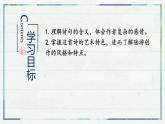 学习目标
Contents
1、理解诗句的含义，体会作者复杂的感情。
2、掌握这首诗的艺术特色，进而了解陆游创作的风格和特点。